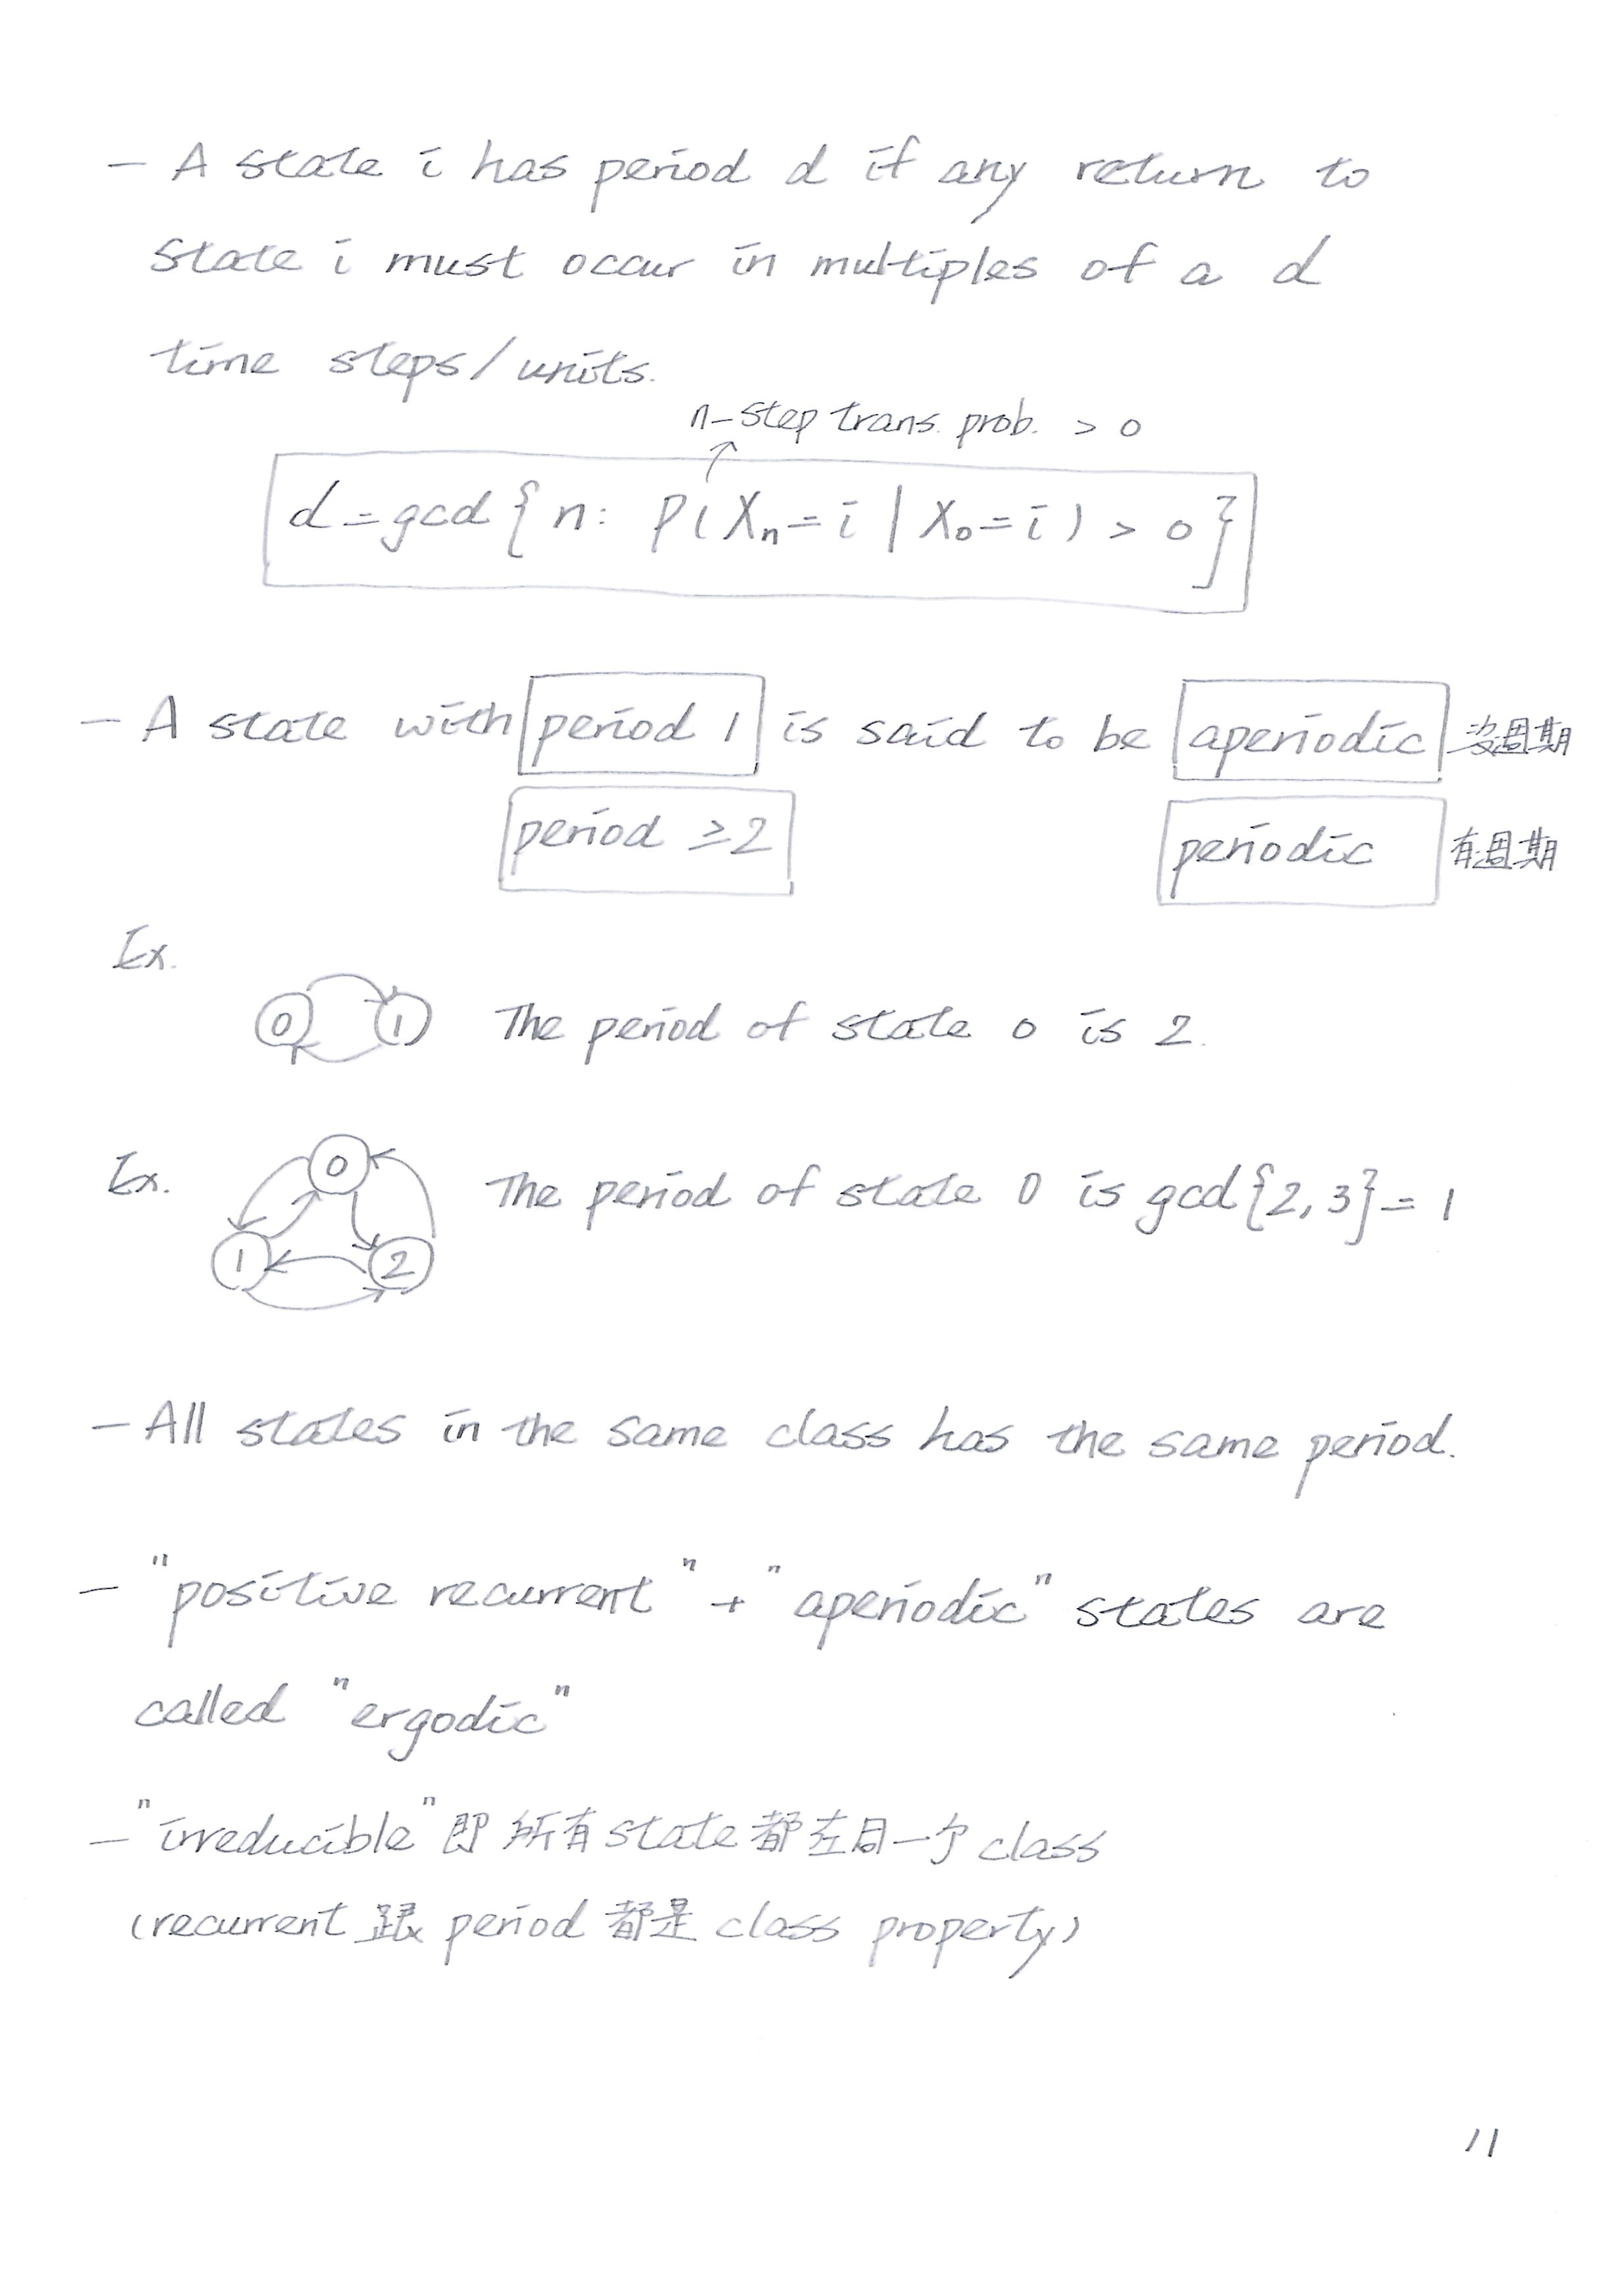 - A state i has period d if any return to
state i must occur in multiples of a d
time steps/units.
n-step trans. prob. > 0
d = gcd { n: P(Xn = i | X0 = i) > 0 }
- A state with period 1 is said to be aperiodic 沒週期
period ≥ 2 periodic 有週期
Ex.
0 1 The period of state 0 is 2.
Ex. 0 The period of state 0 is gcd{2, 3} = 1
1 2
- All states in the same class has the same period.
- "positive recurrent" + "aperiodic" states are
called "ergodic"
- "irreducible" 即所有 state 都在同一个 class
(recurrent 跟 period 都是 class property)
11